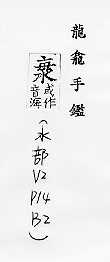 龍龕手鑑
或作
音海
(水部
V2
P14
B2)